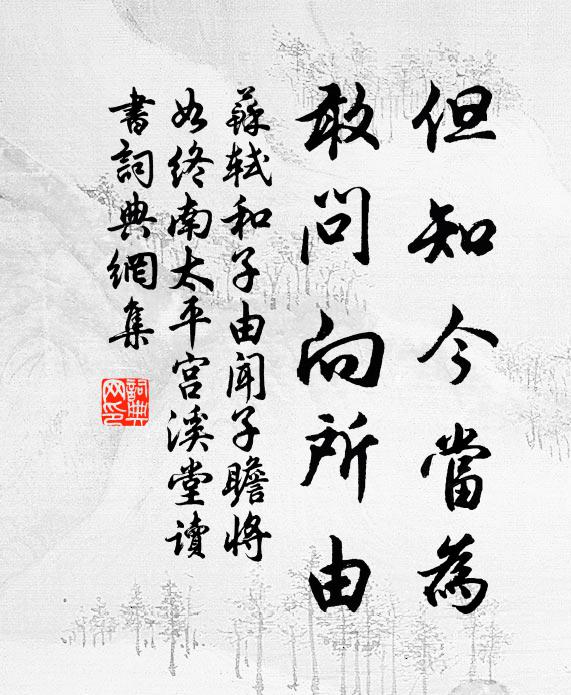 但知今當為
敢問向所由
蘇軾和子由聞子瞻將
如終南太平宮溪堂讀
書詞典網集
詞典
网印